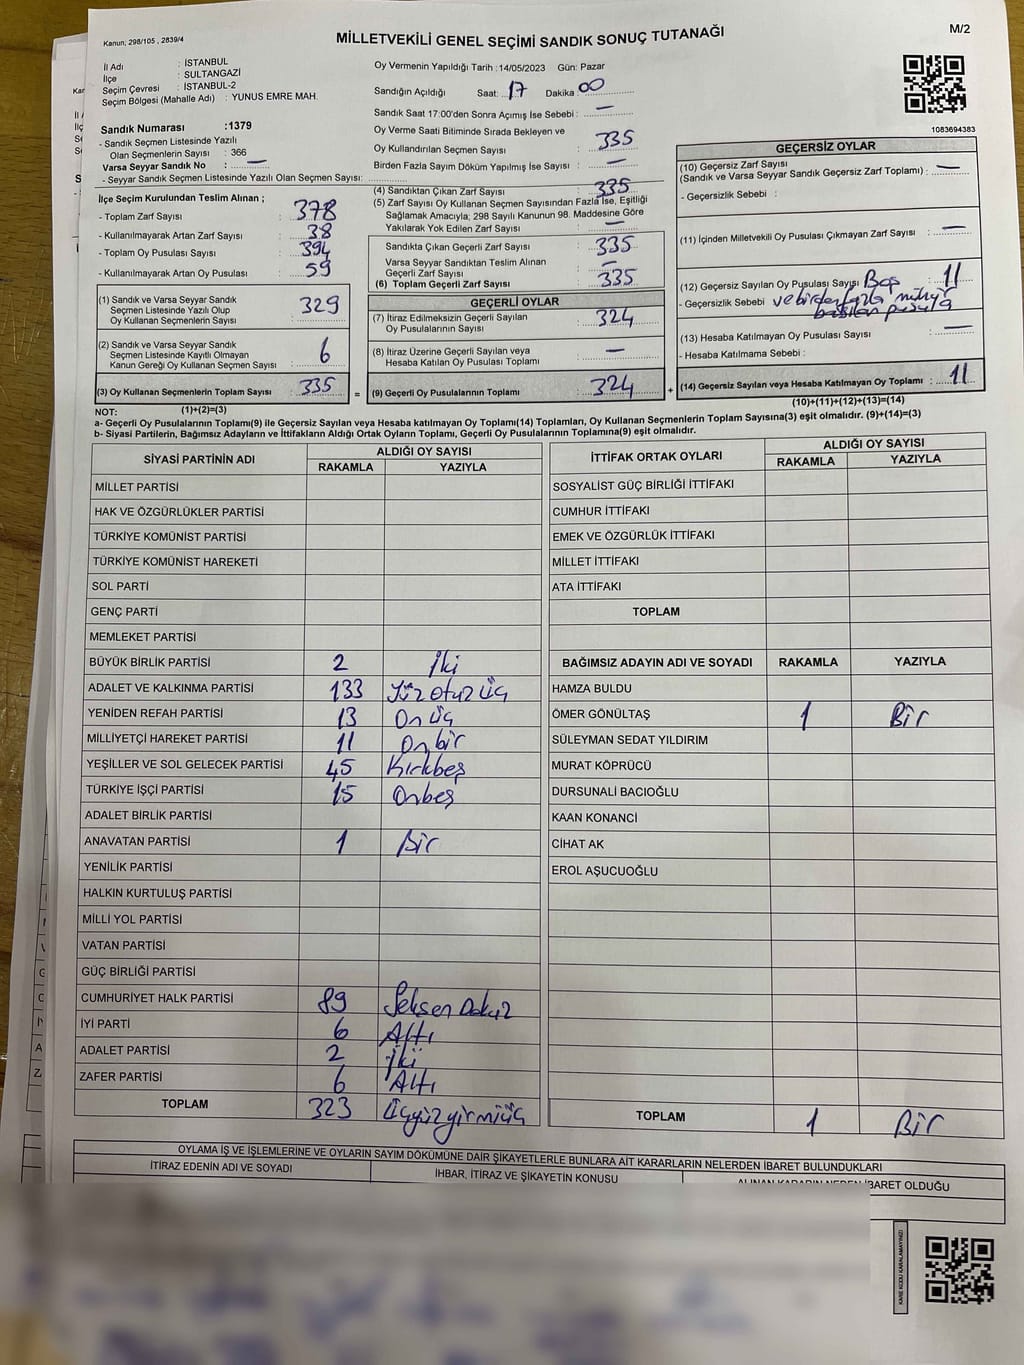 Kanun, 298/105 , 2839/4
MİLLETVEKİLİ GENEL SEÇİMİ SANDIK SONUÇ TUTANAĞI
M/2
İl Adı : İSTANBUL
İlçe : SULTANGAZİ
Seçim Çevresi : İSTANBUL-2
Seçim Bölgesi (Mahalle Adı) : YUNUS EMRE MAH.
Sandık Numarası :1379
- Sandık Seçmen Listesinde Yazılı
Olan Seçmenlerin Sayısı : 366
Varsa Seyyar Sandık No : —
- Seyyar Sandık Seçmen Listesinde Yazılı Olan Seçmen Sayısı:
Oy Vermenin Yapıldığı Tarih :14/05/2023 Gün: Pazar
Sandığın Açıldığı Saat: 17 Dakika 00
Sandık Saat 17:00'den Sonra Açımış İse Sebebi : —
Oy Verme Saati Bitiminde Sırada Bekleyen ve
Oy Kullandırılan Seçmen Sayısı : 335
Birden Fazla Sayım Döküm Yapılmış İse Sayısı : —
1083694383
İlçe Seçim Kurulundan Teslim Alınan ;
- Toplam Zarf Sayısı : 378
- Kullanılmayarak Artan Zarf Sayısı : 38
- Toplam Oy Pusulası Sayısı : 394
- Kullanılmayarak Artan Oy Pusulası : 59
(1) Sandık ve Varsa Seyyar Sandık
Seçmen Listesinde Yazılı Olup
Oy Kullanan Seçmenlerin Sayısı : 329
(2) Sandık ve Varsa Seyyar Sandık
Seçmen Listesinde Kayıtlı Olmayan
Kanun Gereği Oy Kullanan Seçmen Sayısı : 6
(3) Oy Kullanan Seçmenlerin Toplam Sayısı : 335
(1)+(2)=(3)
(4) Sandıktan Çıkan Zarf Sayısı : 335
(5) Zarf Sayısı Oy Kullanan Seçmen Sayısından Fazla İse, Eşitliği
Sağlamak Amacıyla; 298 Sayılı Kanunun 98. Maddesine Göre
Yakılarak Yok Edilen Zarf Sayısı : —
Sandıkta Çıkan Geçerli Zarf Sayısı : 335
Varsa Seyyar Sandıktan Teslim Alınan
Geçerli Zarf Sayısı : —
(6) Toplam Geçerli Zarf Sayısı : 335
GEÇERLİ OYLAR
(7) İtiraz Edilmeksizin Geçerli Sayılan
Oy Pusulalarının Sayısı : 324
(8) İtiraz Üzerine Geçerli Sayılan veya
Hesaba Katılan Oy Pusulası Toplamı : —
= (9) Geçerli Oy Pusulalarının Toplamı : 324 +
GEÇERSİZ OYLAR
(10) Geçersiz Zarf Sayısı
(Sandık ve Varsa Seyyar Sandık Geçersiz Zarf Toplamı) : —
- Geçersizlik Sebebi :
(11) İçinden Milletvekili Oy Pusulası Çıkmayan Zarf Sayısı : —
(12) Geçersiz Sayılan Oy Pusulası Sayısı Boş 11
- Geçersizlik Sebebi ve birden fazla mühür
basılan pusula
(13) Hesaba Katılmayan Oy Pusulası Sayısı : —
- Hesaba Katılmama Sebebi :
(14) Geçersiz Sayılan veya Hesaba Katılmayan Oy Toplamı : 11
(10)+(11)+(12)+(13)=(14)
NOT:
a- Geçerli Oy Pusulalarının Toplamı(9) ile Geçersiz Sayılan veya Hesaba katılmayan Oy Toplamı(14) Toplamları, Oy Kullanan Seçmenlerin Toplam Sayısına(3) eşit olmalıdır. (9)+(14)=(3)
b- Siyasi Partilerin, Bağımsız Adayların ve İttifakların Aldığı Ortak Oyların Toplamı, Geçerli Oy Pusulalarının Toplamına(9) eşit olmalıdır.
SİYASİ PARTİNİN ADI
ALDIĞI OY SAYISI
RAKAMLA YAZIYLA
MİLLET PARTİSİ
HAK VE ÖZGÜRLÜKLER PARTİSİ
TÜRKİYE KOMÜNİST PARTİSİ
TÜRKİYE KOMÜNİST HAREKETİ
SOL PARTİ
GENÇ PARTİ
MEMLEKET PARTİSİ
BÜYÜK BİRLİK PARTİSİ 2 İki
ADALET VE KALKINMA PARTİSİ 133 Yüz otuz üç
YENİDEN REFAH PARTİSİ 13 On üç
MİLLİYETÇİ HAREKET PARTİSİ 11 On bir
YEŞİLLER VE SOL GELECEK PARTİSİ 45 Kırkbeş
TÜRKİYE İŞÇİ PARTİSİ 15 Onbeş
ADALET BİRLİK PARTİSİ
ANAVATAN PARTİSİ 1 Bir
YENİLİK PARTİSİ
HALKIN KURTULUŞ PARTİSİ
MİLLİ YOL PARTİSİ
VATAN PARTİSİ
GÜÇ BİRLİĞİ PARTİSİ
CUMHURİYET HALK PARTİSİ 89 Seksen Dokuz
İYİ PARTİ 6 Altı
ADALET PARTİSİ 2 İki
ZAFER PARTİSİ 6 Altı
TOPLAM 323 Üçyüzyirmiüç
İTTİFAK ORTAK OYLARI
ALDIĞI OY SAYISI
RAKAMLA YAZIYLA
SOSYALİST GÜÇ BİRLİĞİ İTTİFAKI
CUMHUR İTTİFAKI
EMEK VE ÖZGÜRLÜK İTTİFAKI
MİLLET İTTİFAKI
ATA İTTİFAKI
TOPLAM
BAĞIMSIZ ADAYIN ADI VE SOYADI RAKAMLA YAZIYLA
HAMZA BULDU
ÖMER GÖNÜLTAŞ 1 Bir
SÜLEYMAN SEDAT YILDIRIM
MURAT KÖPRÜCÜ
DURSUNALİ BACIOĞLU
KAAN KONANCİ
CİHAT AK
EROL AŞUCUOĞLU
TOPLAM 1 Bir
OYLAMA İŞ VE İŞLEMLERİNE VE OYLARIN SAYIM DÖKÜMÜNE DAİR ŞİKAYETLERLE BUNLARA AİT KARARLARIN NELERDEN İBARET BULUNDUKLARI
İTİRAZ EDENİN ADI VE SOYADI
İHBAR, İTİRAZ VE ŞİKAYETİN KONUSU
ALINAN KARARIN NEDEN İBARET OLDUĞU
KARE KODU KARALAMAYINIZ!